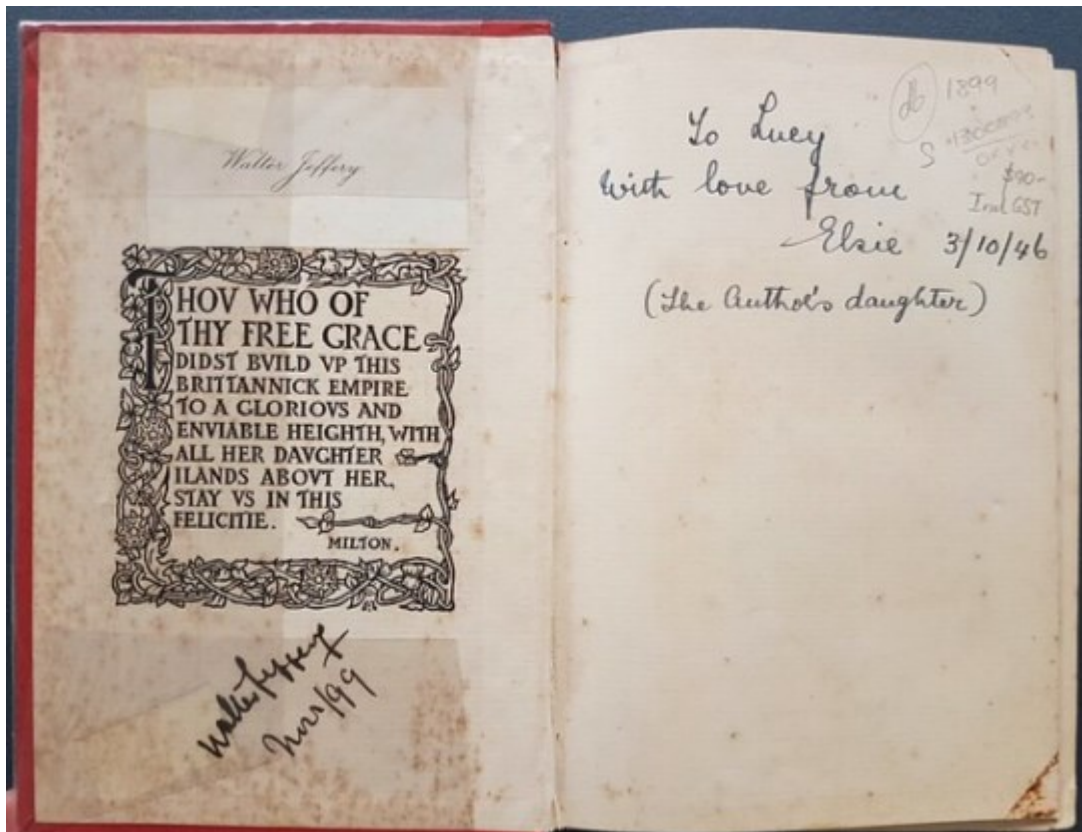 Walter Jeffery
THOV WHO OF
THY FREE GRACE
DIDST BVILD VP THIS
BRITTANNICK EMPIRE
TO A GLORIOVS AND
ENVIABLE HEIGHTH, WITH
ALL HER DAVGHTER
ILANDS ABOVT HER,
STAY VS IN THIS
FELICITIE.
MILTON.
Walter Jeffery
Nov/99
To Lucy
with love from
Elsie 3/10/46
(The Author's daughter)
1899
S
$90-
Incl GST